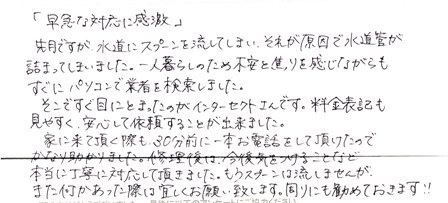 「早急な対応に感激」
先月ですが、水道にスプーンを流してしまい、それが原因で水道管が
詰まってしまいました。一人暮らしのため不安と焦りを感じながらも
すぐにパソコンで業者を検索しました。
そこですぐ目にとまったのがインターセクトさんです。料金表記も
見やすく、安心して依頼することが出来ました。
家に来て頂く際も、30分前に一本お電話をして頂けたので
かなり助かりました。修理後は、今後気をつけることなど
本当に丁寧に対応して頂きました。もうスプーンは流しませんが、
また何かあった際は宜しくお願い致します。周りにも勧めておきます!!